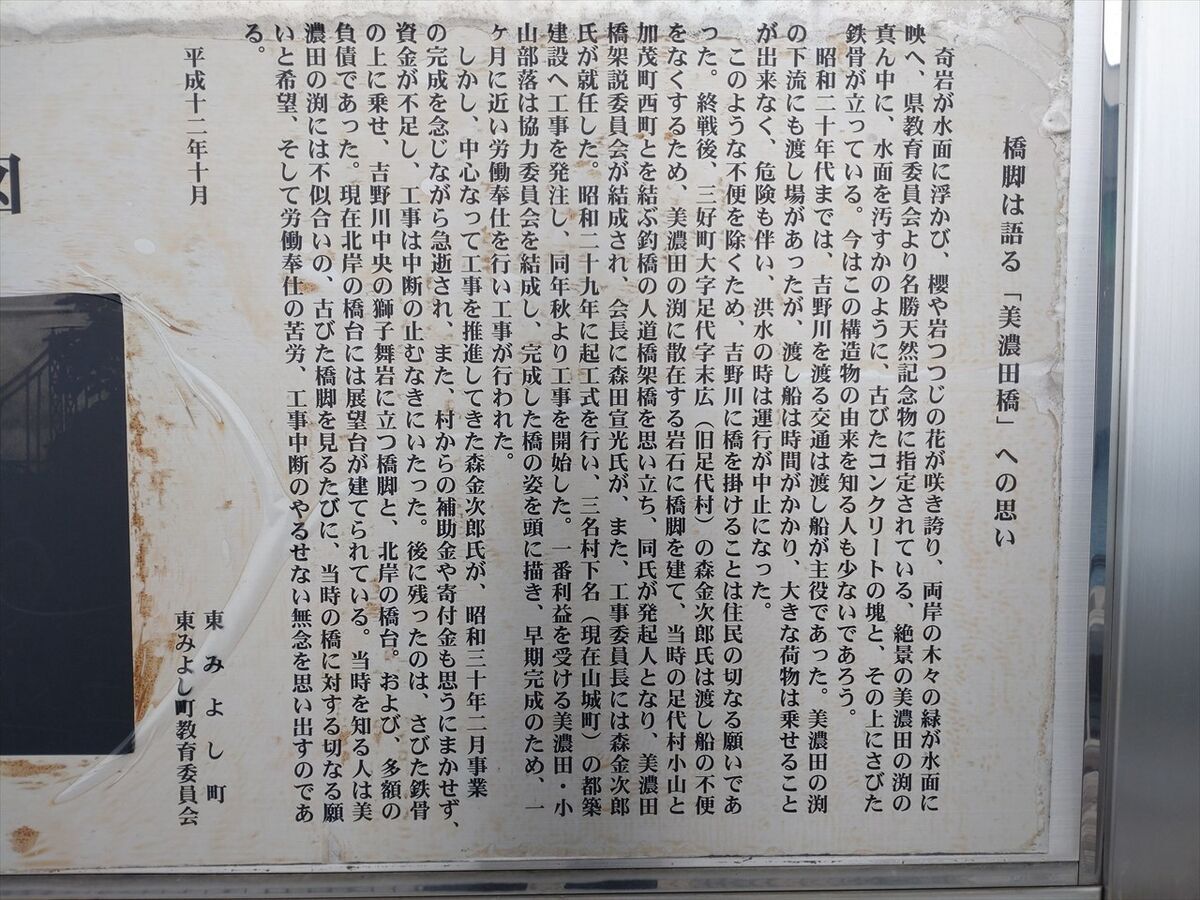 橋脚は語る「美濃田橋」への思い
奇岩が水面に浮かび、櫻や岩つつじの花が咲き誇り、両岸の木々の緑が水面に
映へ、県教育委員会より名勝天然記念物に指定されている、絶景の美濃田の渕の
真ん中に、水面を汚すかのように、古びたコンクリートの塊と、その上にさびた
鉄骨が立っている。今はこの構造物の由来を知る人も少ないであろう。
昭和二十年代までは、吉野川を渡る交通は渡し船が主役であった。美濃田の渕
の下流にも渡し場があったが、渡し船は時間がかかり、大きな荷物は乗せること
が出来なく、危険も伴い、洪水の時は運行が中止になった。
このような不便を除くため、吉野川に橋を掛けることは住民の切なる願いであ
った。終戦後、三好町大字足代字末広（旧足代村）の森金次郎氏は渡し船の不便
をなくするため、美濃田の渕に散在する岩石に橋脚を建て、当時の足代村小山と
加茂町西町とを結ぶ釣橋の人道橋架橋を思い立ち、同氏が発起人となり、美濃田
橋架説委員会が結成され、会長に森田宣光氏が、また、工事委員長には森金次郎
氏が就任した。昭和二十九年に起工式を行い、三名村下名（現在山城町）の都築
建設へ工事を発注し、同年秋より工事を開始した。一番利益を受ける美濃田・小
山部落は協力委員会を結成し、完成した橋の姿を頭に描き、早期完成のため、一
ケ月に近い労働奉仕を行い工事が行われた。
しかし、中心なって工事を推進してきた森金次郎氏が、昭和三十年二月事業
の完成を念じながら急逝され、また、村からの補助金や寄付金も思うにまかせず、
資金が不足し、工事は中断の止むなきにいたった。後に残ったのは、さびた鉄骨
の上に乗せ、吉野川中央の獅子舞岩に立つ橋脚と、北岸の橋台。および、多額の
負債であった。現在北岸の橋台には展望台が建てられている。当時を知る人は美
濃田の渕には不似合いの、古びた橋脚を見るたびに、当時の橋に対する切なる願
いと希望、そして労働奉仕の苦労、工事中断のやるせない無念を思い出すのであ
る。
平成十二年十月
東みよし町
東みよし町教育委員会